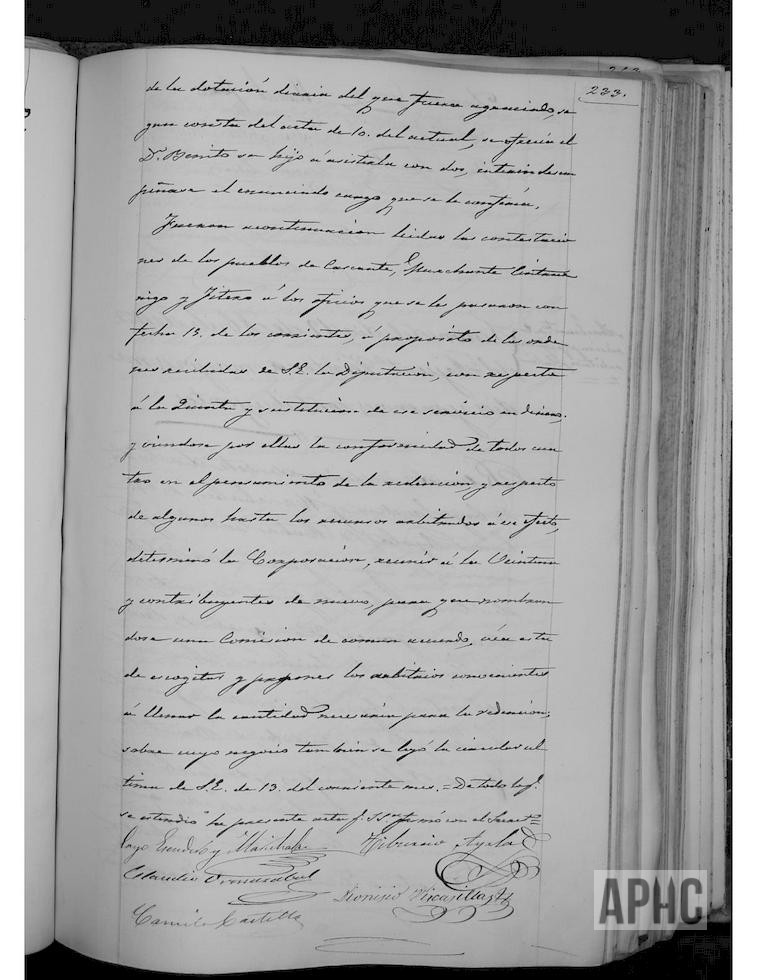 233.
de la dotación diaria del que fuera agraciado, se
gun consta del acta de 10. del actual, se ofrecia el
D. Benito su hijo á asistirla con dos, interin desem
peñase el enunciado cargo que se le conferia.
Fueron acontinuacion leidas las contestacio
nes de los pueblos de Cascante, Murchante Cintrue
nigo y Fitero á los oficios que se les pasaron con
fecha 13. de los corrientes, á proposito de las orde
nes recibidas de S.E. la Diputacion, con respecto
á la Quinta y sustitucion de ese servicio en dinero,
y viendose por ellas la conformidad de todos cua
tro en el pensamiento de la redencion, y respecto
de algunos hasta los recursos arbitrados á ese efecto,
determinó la Corporacion, reunir á la Veintena
y contribuyentes de nuevo, para que nombran
dose una Comision de comun acuerdo, vea esta
de escogitar y proponer los arbitrios convenientes
á llenar la cantidad necesaria para la redencion;
sobre cuyo negocio tambien se leyó la circular ul
tima de S.E. de 13. del corriente mes. = De todo lo q.
se estendió la presente acta q. S.S. firmó con el Secret.º
Tiburcio Ayala
Claudio
Dionisio
Camilo Castilla
APHC